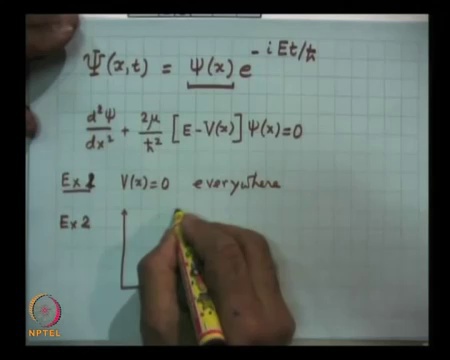 Ψ(x,t) = Ψ(x) e^{-iEt/ħ}
d²Ψ/dx² + 2μ/ħ² [E-V(x)] Ψ(x)=0
Ex 1 V(x)=0 everywhere
Ex 2
NPTEL